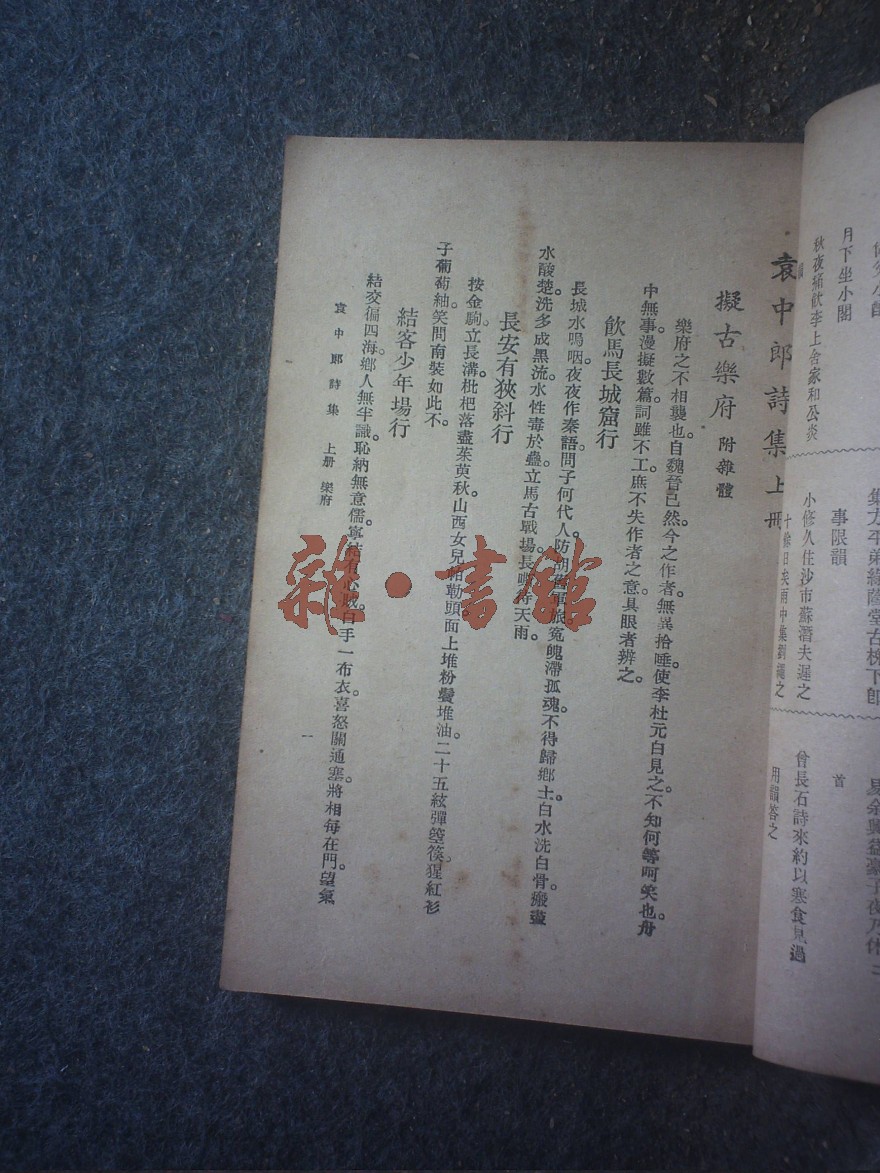 月下坐小閣
秋夜 飲李上舍家和公炎
事限韻
小修久住沙市蘇潛夫遲之
雨中集劉 之
首
曾長石詩來約以寒食見過
用韻答之
袁中郎詩集 上冊
擬古樂府 附雜體
樂府之不相襲也。自魏晉已然。今之作者。無異拾唾。使李杜元白見之。不知何等呵笑也。舟
中無事。漫擬數篇。詞雖不工。庶不失作者之意。具眼者辨之。
飲馬長城窟行
長城水嗚咽。夜夜作秦語。問子何代人。防胡 軍旅。冤魄滯孤魂。不得歸鄉土。白水洗白骨。搬盡
水酸楚。洗多成黑流。水性毒於蠱。立馬古戰場。長 天雨。
長安有狹斜行
按金駒。立長溝。枇杷落盡茱萸秋。山西女兒帕勒頭。面上堆粉鬢堆油。二十五絃彈箜篌。猩紅衫
子葡萄紬。笑問南裝如此不。
結客少年場行
結交徧四海。鄉人無半識。恥納無意儒。寧結有心賊。白手一布衣。喜怒關通塞。將相每在門。望氣
袁中郎詩集 上册 樂府
一
雜·書館